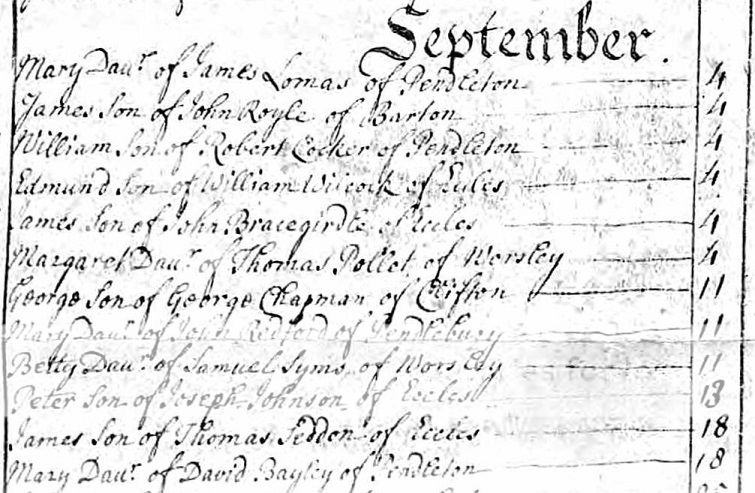 September.
Mary Daur. of James Lomas of Pendleton 4
James Son of John Royle of Barton 4
William Son of Robert Cocker of Pendleton 4
Edmund Son of William Wilcock of Eccles 4
James Son of John Bracegirdle of Eccles 4
Margaret Daur. of Thomas Pollet of Worsley 4
George Son of George Chapman of Clifton 11
Mary Daur. of John Redford of Pendlebury 11
Betty Daur. of Samuel Syms of Worsley 11
Peter Son of Joseph Johnson of Eccles 13
James Son of Thomas Seddon of Eccles 18
Mary Daur. of David Bayley of Pendleton 18